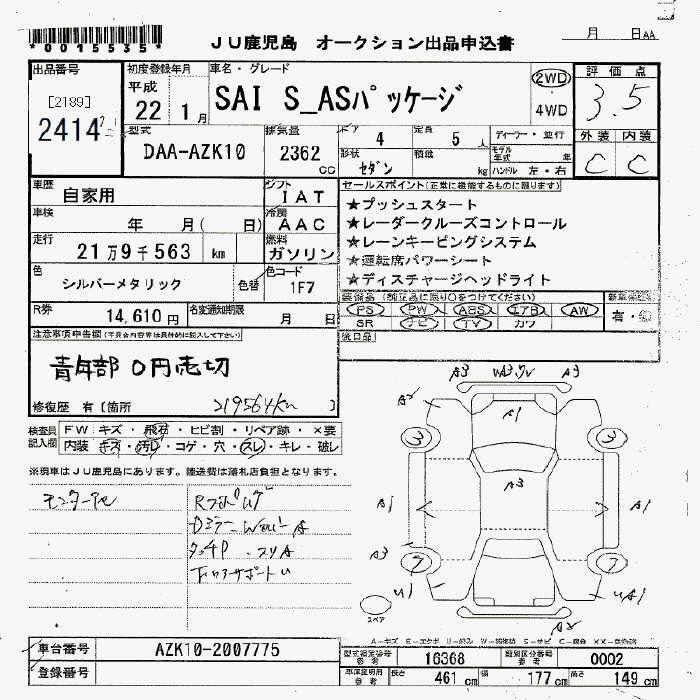 *0015535*
JU鹿児島 オークション出品申込書
月 日 AA
出品番号
[2189]
2414
初度登録年月
平成
22 1月
車名・グレード
SAI S_ASパッケージ
2WD
4WD
評価点
3.5
型式
DAA-AZK10
排気量
2362
cc
ドア 4
定員 5 人
ディーラー・並行
形状 セダン
積載 kg
モデル年式 年
ハンドル 左・右
外装 内装
C C
車歴
自家用
シフト IAT
車検
年 月( 日)
冷房 AAC
走行
21万9千563 km
燃料 ガソリン
色
シルバーメタリック
色替
色コード
1F7
R券
14,610円
名変通知期限
月 日
セールスポイント(正常に機能するものに限ります)
★プッシュスタート
★レーダークルーズコントロール
★レーンキーピングシステム
★運転席パワーシート
★ディスチャージヘッドライト
装備品(純正品に限り○をつけてください)
PS PW ABS エアB AW
SR ナビ TV カワ
新車保証書
有・無
後日品
注意事項申告欄
青年部 0円売切
修復歴 有〔箇所 219564km 〕
検査員記入欄
FW キズ・飛石・ヒビ割・リペア跡・×要
内装 キズ・汚れ・コゲ・穴・スレ・キレ・破レ
※現車はJU鹿児島にあります。陸送費は落札店負担となります。
A3 A3
A2
A1
3 3
A3
A1 A1
A3
7 7
U1 UA1
A2
スペア
A-キズ E-エクボ U-凹み W-補修跡 S-サビ C-腐食
車台番号
AZK10-2007775
登録番号
型式指定番号
参考
16368
類別区分番号
参考
0002
車庫証明用
参考
長さ 461 cm
幅 177 cm
高さ 149 cm